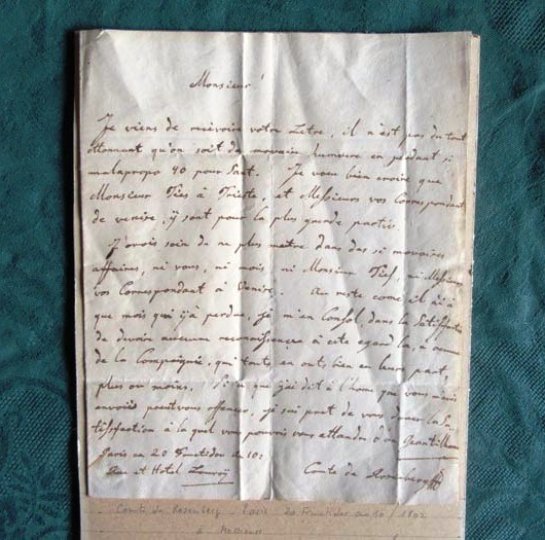 Monsieur
Je viens de recevoir votre Lettre, il n'est pas du tout
ettonnant qu'on soit de movaise humeure en perdant si
malapropo 40 pour Cent. Je veux bien croire que
Monsieur Ties à Trieste, et Messieurs vos Correspondant
de venise, y sont pour la plus garde partie
J'orois soin de ne plus mettre dans das si movaises
affaires, ni vous, ni mois ni Monsieur Ties, ni Messieurs
vos Correspondant à Venise. Au reste come il n'i à
que mois qui i'à perdue, je m'en Consol, dans la Satisfaction
de devoir aucune reconaissençe à cete egard la, à aucun
de la Compagnie, qui toute en onts bien eu leure part,
plus ou moins. Si ce que j'ai dit à l'home que vous m'avéz
envoié peut vous offenser, je sui pret de vous doner la Sa-
tisfaction à la quel vous pouvois vous attandre d'un Gentilhome
Paris ce 20 Fructidor an 10:
Comte de Rosenberg
Comte de Rosenberg Paris 20 Fructidor an 10 / 1802